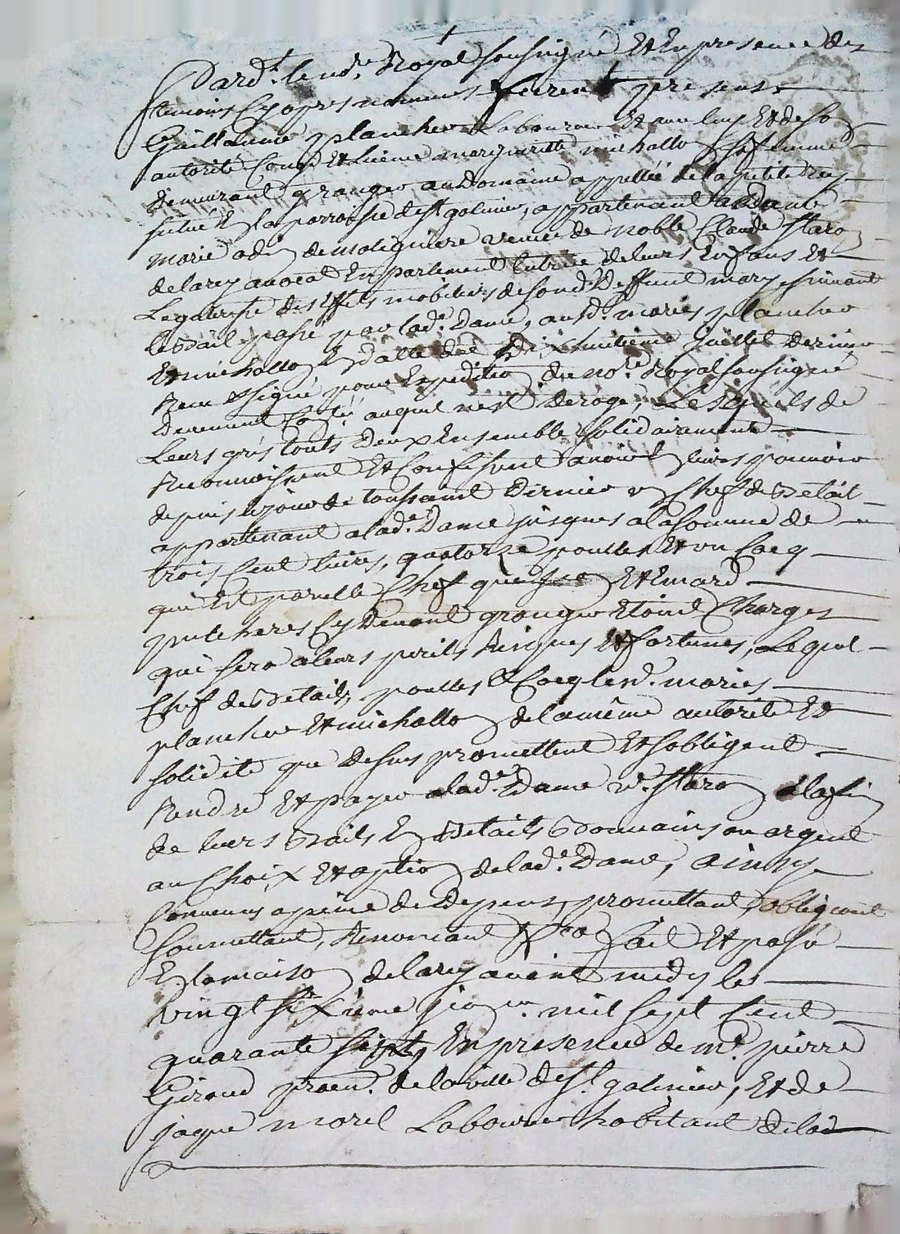 Pard.t le no.re Royal soussigné Et En presence des
temoins Cy apres nommes furent presens
Guillaume planchet Laboureur Et avec luy Et de son
autorité Cong. Et licence marguerite michallon sa femme
demeurant granger au Domaine appellé de la petite
situé En la parroisse de st galmier, appartenant a Dame
marie de moliniere veuve de noble Claude
de larey avocat En parlement tutrice de leurs Enfans Et
Legataire des Effets mobiliers de son d. Deffunt mary suivant
le Bail passé par lad.e Dame, aud.s maries planchet
Et michallon En datte du Dixhuitieme Juillet dernier
Receu Et signé pour Expedition du no.re Royal soussigné
Deuement Conlé, auquel n'est deroge, Lesquels de
Leurs grés touts deux Ensemble solidairement
Reconnoissent Et Confessent avoir En leurs pouvoir
depuis le jour de toussaint Dernier En Chef de Betail
appartenant a lad.e Dame jusques a la somme de
trois Cent livres, quatorze poulles Et un Cocq
qui Est pareille Chef que Et Emard
putheres Cy devant granger Etoint Charges
qui sera a leurs perils Risques Et fortunes, Lequel
Chef de Betails, poulles & Cocq lesd. maries
planchet Et michallon de la même autorité Et
solidité que Dessus promettent Et sobligent
Rendre Et payer a lad.e Dame v.e a la fin
de leurs Bails En Betails Bon mains ou argent
au Choix Et option de lad.e Dame, ainsy
Convenus a peine de Depens, promettant obligeant
soumettant, Renoncant &ca fait Et passé
En la maison de larey avant midy le
vingt sixieme mil sept Cent
quarante sept En presence de m.e pierre
Giroud procu.r de la ville de st galmier, Et de
jaque morel Laboureur habitant de lad